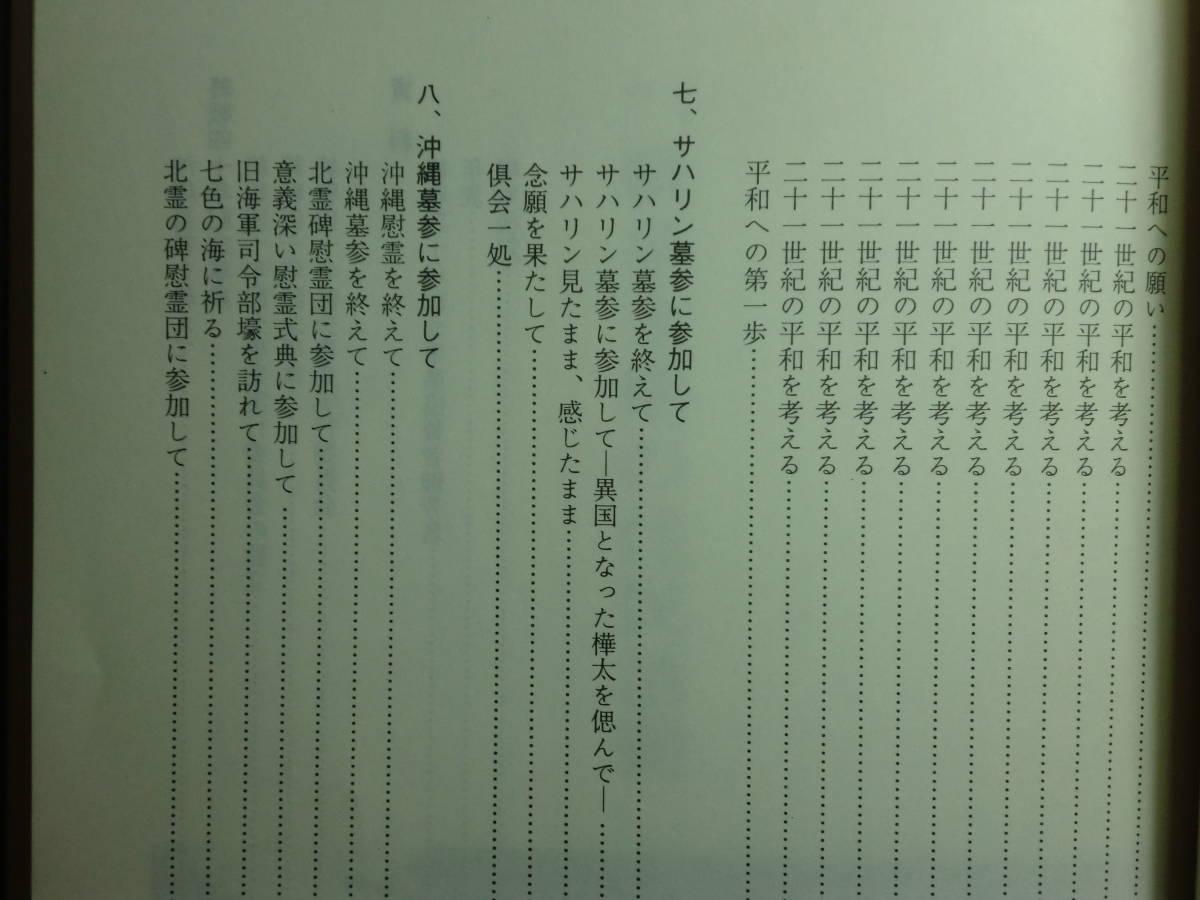 平和への願い……………………
二十一世紀の平和を考える……………………
二十一世紀の平和を考える……………………
二十一世紀の平和を考える……………………
二十一世紀の平和を考える……………………
二十一世紀の平和を考える……………………
二十一世紀の平和を考える……………………
二十一世紀の平和を考える……………………
二十一世紀の平和を考える……………………
二十一世紀の平和を考える……………………
二十一世紀の平和を考える……………………
平和への第一歩……………………
七、サハリン墓参に参加して
サハリン墓参を終えて……………………
サハリン墓参に参加して―異国となった樺太を偲んで―……………………
サハリン見たまま、感じたまま……………………
念願を果たして……………………
倶会一処……………………
八、沖縄墓参に参加して
沖縄慰霊を終えて……………………
沖縄墓参を終えて……………………
北霊碑慰霊団に参加して……………………
意義深い慰霊式典に参加して……………………
旧海軍司令部壕を訪れて……………………
七色の海に祈る……………………
北霊の碑慰霊団に参加して……………………